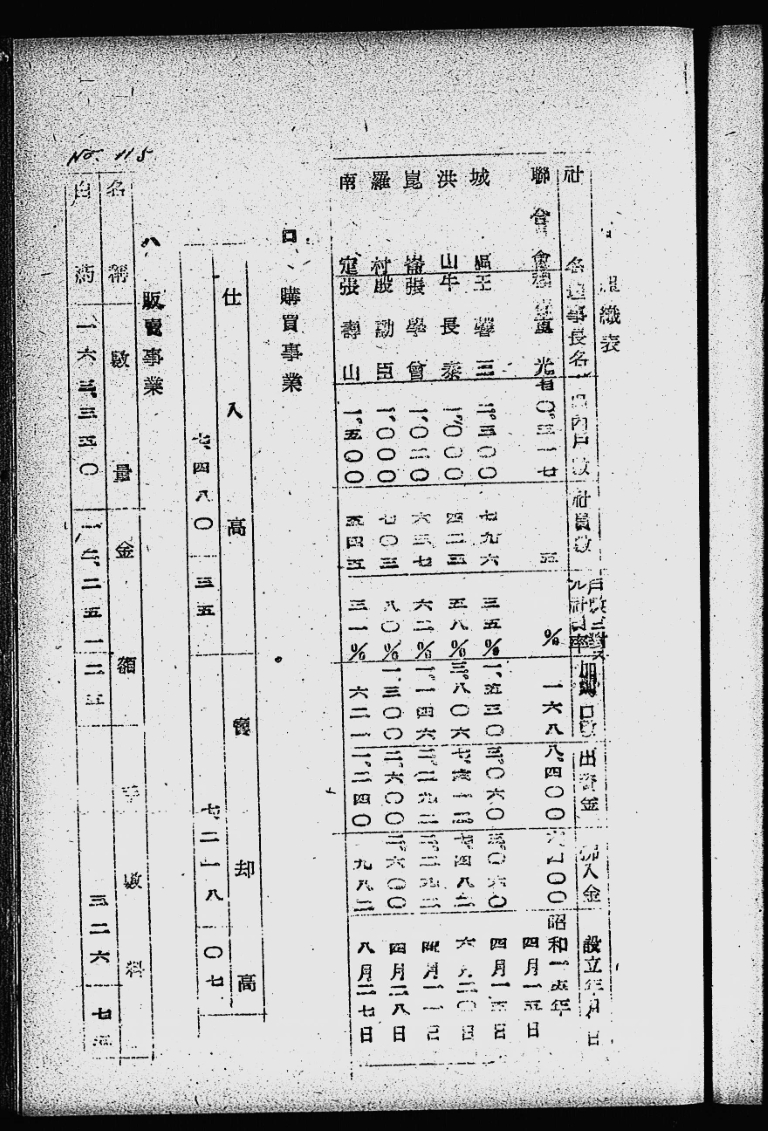 No. 115
織表
社名 理事長名 區內戶數 社員數 戶數ニ對スル社員率 加入口數 出資金 拂入金 設立年月日
聯合會 光 一〇、三一七 五 % 一六八 八、四〇〇 昭和一五年四月一五日
城區 王 三 二、三〇〇 七九六 三五% 一、五三〇 三、〇六〇 三、〇六〇 四月一五日
洪山 牛長泰 一、〇〇〇 四二五 五八% 三、八〇六 六月二〇日
崑崙 張學會 一、〇二〇 六三七 六二% 一、一四六 二、二九二 二、二九二 月一一日
羅村 殷勳臣 一、〇〇〇 七〇三 八〇% 一、三〇〇 二、六〇〇 二、六〇〇 四月二八日
南定 張壽山 一、五〇〇 五四五 三一% 六二一 一、二四〇 九八二 八月二七日
ロ、購買事業
仕入高 賣却高
七、四八〇 三五 七、二一八 〇七
ハ、販賣事業
名稱 數量 金額 手數料
白 一六三、三五〇 一二、二五一 二五 三二六 七五